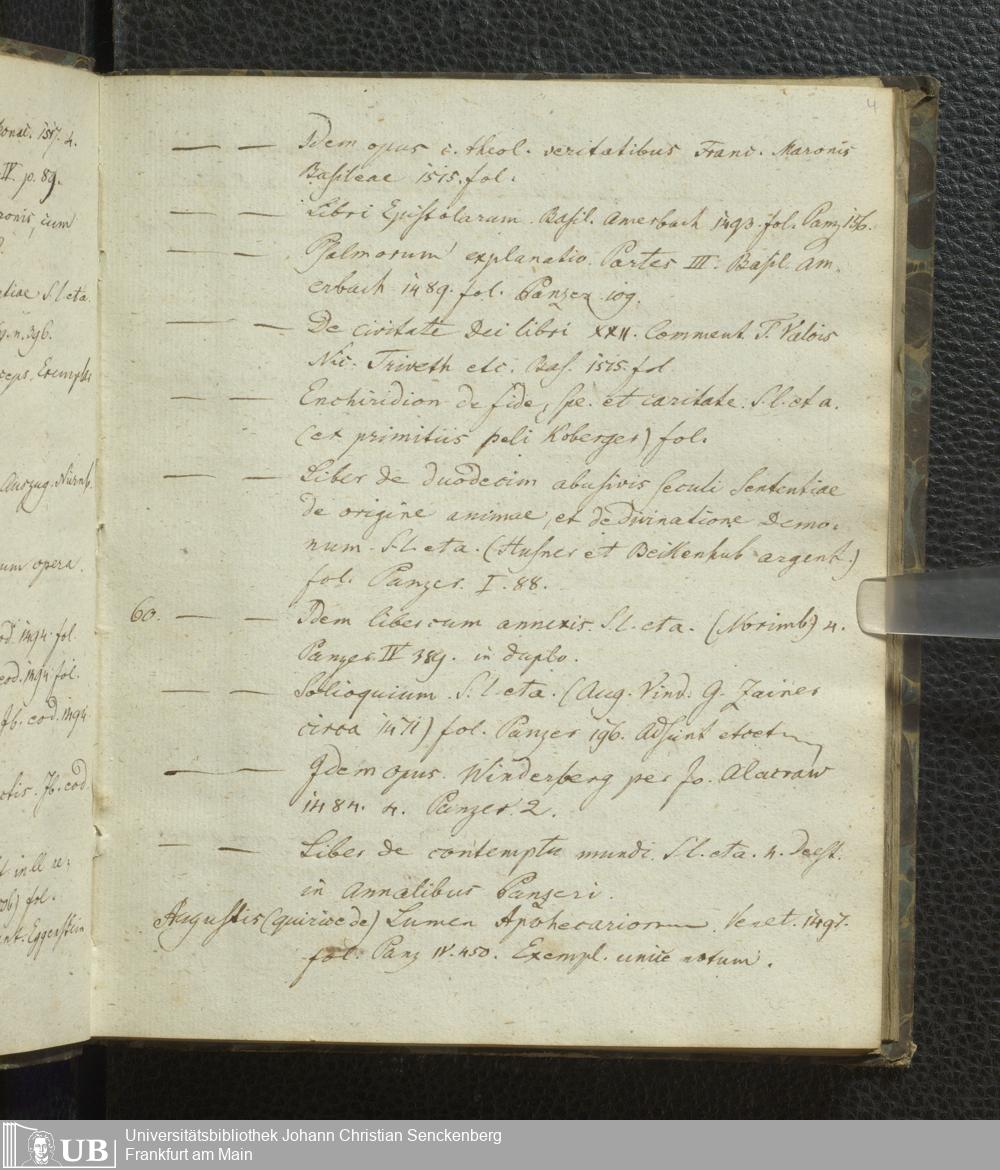 onac. 1517. 4.
IV. p. 89.
ronis, cum
etiae S. l. et a.
g. n. 396.
ceps. Exempl.
Auszug. Nürnb.
um opera.
od. 1494. fol.
eod. 1494 fol.
Jb. eod. 1494
ctis. Jb. eod.
fol.
nt. Eggenstein
4
— — Idem opus c. theol. veritatibus Franc. Maronis
Basileae 1515. fol.
— — Libri Epistolarum. Basil. Amerbach 1493. fol. Panz. 136.
— — Psalmorum explanatio. Partes III. Basil. Am.
erbach 1489. fol. Panzer. 109.
— — De civitate Dei libri XXII. Comment. T. Valois
Nic. Triveth etc. Bas. 1515. fol
— — Enchiridion de fide, spe. et caritate. S. l. et a.
(ex primitiis peli Koberger) fol.
— — Liber de duodecim abusivis seculi Sententiae
de origine animae, et de Divinatione Demo.
num. S. l. et a. (Husner et Beckenhub argent.)
fol. Panzer. I. 88.
60. — — Idem liber cum annexis. S. l. et a. (Norimb) 4.
Panzer. IV 389. in duplo.
— — Solioquium. S. l. et a. (Aug. Vind. G. Zainer
circa 1471) fol. Panzer 196. Adsunt et oct
— — Idem opus. Winderberg per Jo. Alacraw
1484. 4. Panzer. 2.
— — Liber de contemptu mundi. S. l. et a. 4. Deest.
in Annalibus Panzeri.
Augustis (quiricede) Lumen Apothecariorum. Venet. 1497.
fol. Panz IV. 450. Exempl. unice notum.
UB
Universitätsbibliothek Johann Christian Senckenberg
Frankfurt am Main